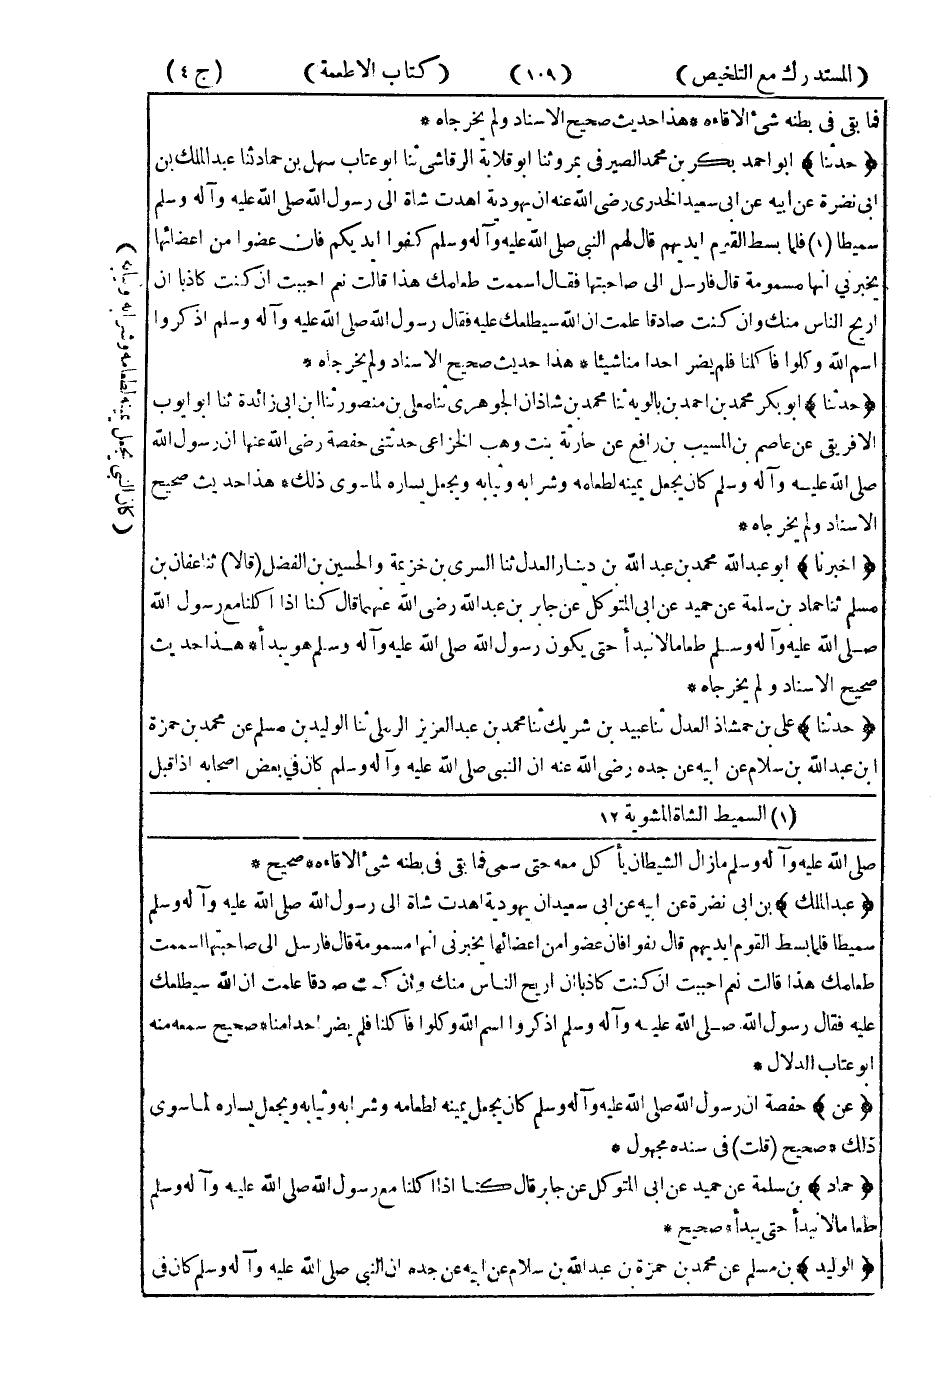 (المستدرك مع التلخيص) (١٠٩) (كتاب الاطعمة) (ج ٤)
فما بقى فى بطنه شئ الا قاءه * هذا حديث صحيح الاسناد ولم يخرجاه *
﴿ حدثنا ﴾ ابو احمد بكر بن محمد الصيرفى بمرو ثنا ابو قلابة الرقاشى ثنا ابو عتاب سهل بن حماد ثنا عبد الملك بن
ابى نضرة عن ابيه عن ابى سعيد الخدرى رضى الله عنه ان يهودية اهدت شاة الى رسول الله صلى الله عليه وآله وسلم
سميطا (١) فلما بسط القوم ايديهم قال لهم النبى صلى الله عليه وآله وسلم كفوا ايديكم فان عضوا من اعضائها
يخبرني انها مسمومة قال فارسل الى صاحبتها فقال اسممت طعامك هذا قالت نعم احببت ان كنت كاذبا ان
اريح الناس منك وان كنت صادقا علمت ان الله سيطلعك عليه فقال رسول الله صلى الله عليه وآله وسلم اذكروا
اسم الله وكلوا فاكلنا فلم يضر احدا منا شيئا * هذا حديث صحيح الاسناد ولم يخرجاه *
﴿ حدثنا ﴾ ابو بكر محمد بن احمد بن بالويه ثنا محمد بن شاذان الجوهرى ثنا معلى بن منصور ثنا ابن ابى زائدة ثنا ابو ايوب
الافريقى عن عاصم بن المسيب بن رافع عن حارثة بنت وهب الخزاعى حدثتنى حفصة رضى الله عنها ان رسول الله
صلى الله عليه وآله وسلم كان يجعل يمينه لطعامه وشرابه وثيابه ويجعل يساره لما سوى ذلك * هذا حديث صحيح
الاسناد ولم يخرجاه *
﴿ اخبرنا ﴾ ابو عبد الله محمد بن عبد الله بن دينار العدل ثنا السرى بن خزيمة والحسين بن الفضل (قالا) ثنا عفان بن
مسلم ثنا حماد بن سلمة عن حميد عن ابى المتوكل عن جابر بن عبد الله رضى الله عنهما قال كنا اذا اكلنا مع رسول الله
صلى الله عليه وآله وسلم طعاما لا نبدأ حتى يكون رسول الله صلى الله عليه وآله وسلم هو يبدأ * هذا حديث
صحيح الاسناد ولم يخرجاه *
﴿ حدثنا ﴾ على بن حمشاذ العدل ثنا عبيد بن شريك ثنا محمد بن عبد العزيز الرملى ثنا الوليد بن مسلم عن محمد بن حمزة
ابن عبد الله بن سلام عن ابيه عن جده رضى الله عنه ان النبى صلى الله عليه وآله وسلم كان في بعض اصحابه اذ اقبل
(كان النبى يجعل يمينه لطعامه وشرابه وثيابه)
(١) السميط الشاة المشوية ١٢
صلى الله عليه وآله وسلم ما زال الشيطان يأكل معه حتى سمى فما بقى فى بطنه شئ الا قاءه * صحيح *
﴿ عبد الملك ﴾ بن ابى نضرة عن ابيه عن ابى سعيد ان يهودية اهدت شاة الى رسول الله صلى الله عليه وآله وسلم
سميطا فلما بسط القوم ايديهم قال فان عضوا من اعضائها يخبرنى انها مسمومة قال فارسل الى صاحبتها اسممت
طعامك هذا قالت نعم احببت ان كنت كاذبا ان اريح الناس منك وان كنت صادقا علمت ان الله سيطلعك
عليه فقال رسول الله صلى الله عليه وآله وسلم اذكروا اسم الله وكلوا فاكلنا فلم يضر احدا منا * صحيح سمعه منه
ابو عتاب الدلال *
﴿ عن ﴾ حفصة ان رسول الله صلى الله عليه وآله وسلم كان يجعل يمينه لطعامه وشرابه وثيابه ويجعل يساره لما سوى
ذلك * صحيح (قلت) فى سنده مجهول *
﴿ حماد ﴾ بن سلمة عن حميد عن ابى المتوكل عن جابر قال كنا اذا اكلنا مع رسول الله صلى الله عليه وآله وسلم
طعاما لا نبدأ حتى يبدأ * صحيح *
﴿ الوليد ﴾ بن مسلم عن محمد بن حمزة بن عبد الله بن سلام عن ابيه عن جده ان النبى صلى الله عليه وآله وسلم كان فى